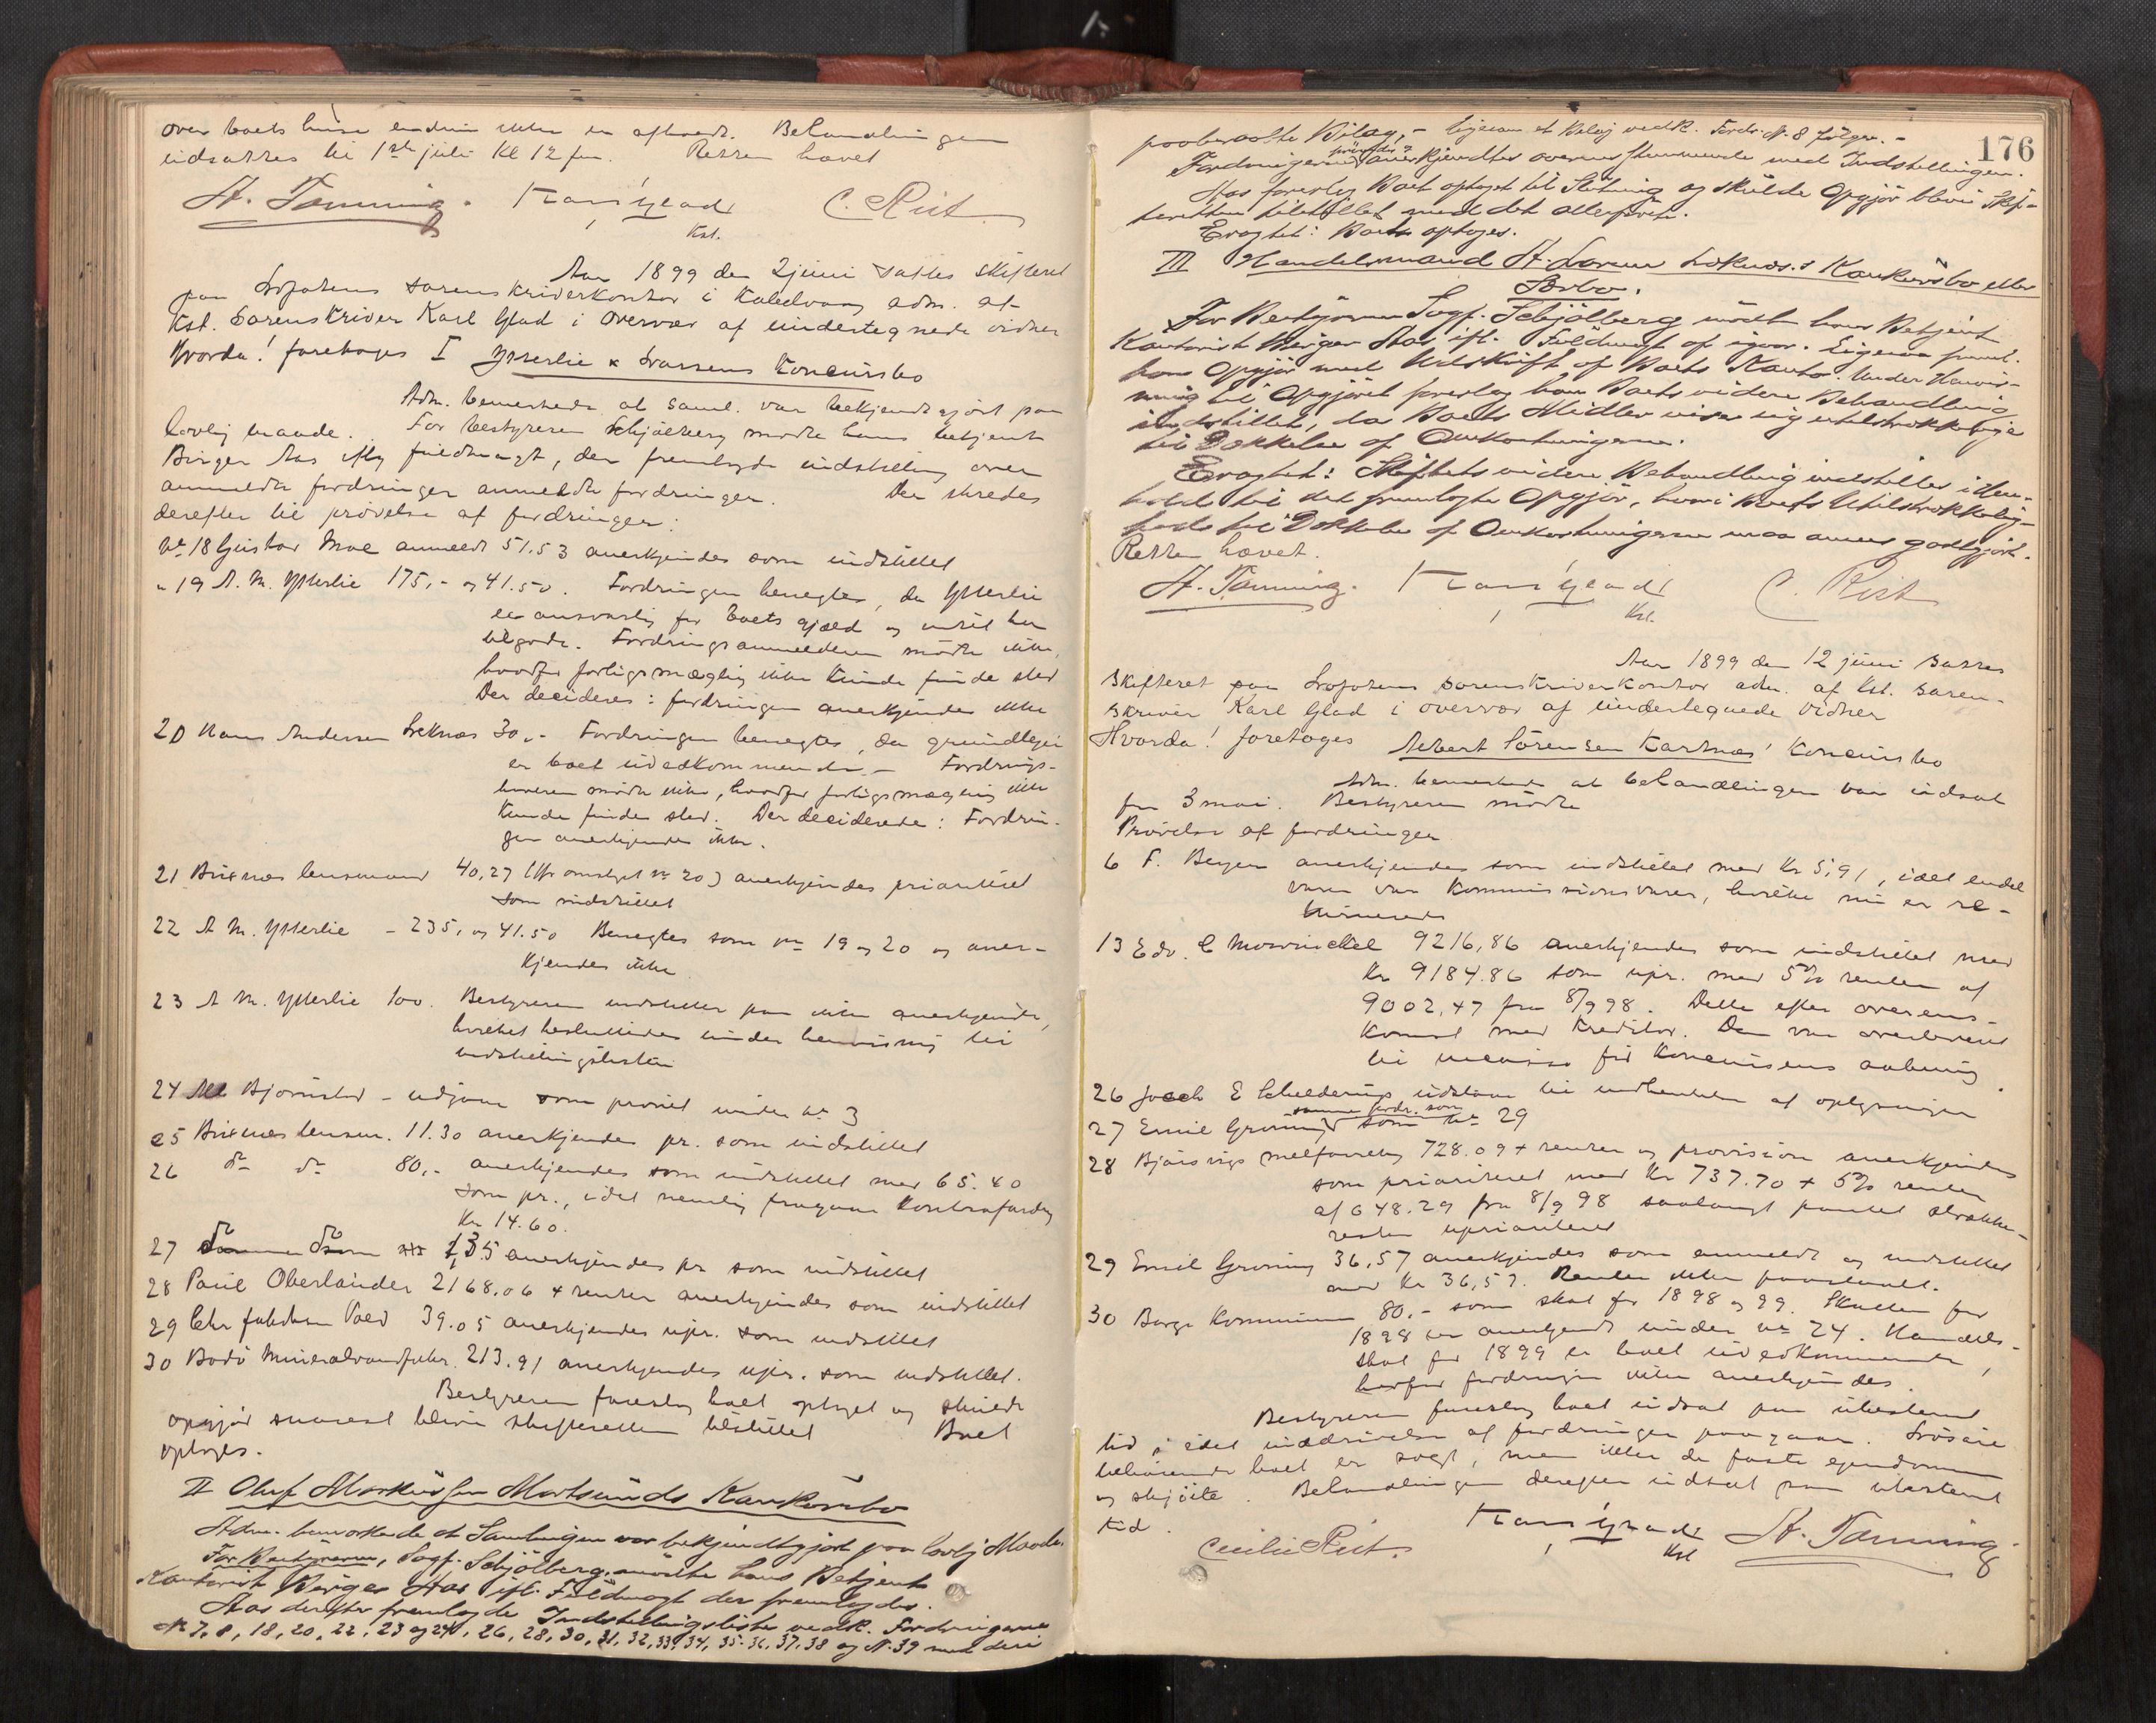 over boets huse endnu ikke er afhændt. Behandlingen
udsættes til 1ste juli Kl 12 fm. Retten hævet
A. Tønning. Karl Glad C. Rist
Kst.
Aar 1899 den 2 juni sattes skifteret
paa Lofotens sorenskriverkontor i Kabelvaag adm. af
Kst. Sorenskriver Karl Glad i Overvær af undertegnede vidner
Hvorda! foretoges I Ytterlie & Larsens Koncursbo
Adm. bemerkede at saml. var bekjendtgjort paa
lovlig maade. For bestyreren Schjølberg mødte hans betjent
Birger Aas iflg fuldmagt, der fremlagde indstilling over
anmeldte fordringer anmeldte fordringer. Der skredes
derefter til prøvelse af fordringer:
No 18 Gustav Moe anmeldt 51.53 anerkjendes som indstillet
" 19 A. M. Ytterlie 175,- og 41.50. Fordringen benegtes, da Ytterlie
er ansvarlig for boets gjæld og intet har
tilgode. Fordringsanmelderen mødte ikke,
hvorfor forligsmægling ikke kunde finde sted
Der decideres: fordringen anerkjendes ikke
20 Hans Andersen Leknæs 30,- Fordringen benegtes, da grundleje
er boet uvedkommende. - Fordrings-
haveren mødte ikke, hvorfor forligsmægling ikke
kunde finde sted. Der deciderede: Fordrin-
gen anerkjendes ikke.
21 Buxnæs lensmand 40,27 anerkjendes prioritet
som indstillet
22 A M. Ytterlie - 235, og 41.50 Benegtes som No 19 og 20 og aner-
kjendes ikke
23 A M. Ytterlie 100. Bestyreren indstiller paa ikke anerkjendt,
hvilket besluttedes under henvisning til
indstillingslisten
24 Bjørnstad - udgaar som prøvet under No 3
25 Buxnæs lensm. 11.30 anerkjendes pr. som indstillet
26 do do 80,- anerkjendes som indstillet med 65.40
som pr., idet nemlig fragaar kontrafordring
Kr 14.60.
27 do do 1,35 anerkjendes pr som indstillet
28 Paul Oberländer 2168.06 + renter anerkjendes som indstillet
29 Chr Jakobsen 39.05 anerkjendes upr. som indstillet
30 Bodø Mineralvandfabr. 213.91 anerkjendes upr. som indstillet.
Bestyreren foreslog boet optaget og skulde
opgjør snarest blive skifteretten tilstillet Boet
optoges.
II Oluf Markussen Mortsunds Konkursbo
Adm. bemærkede at Samlingen var bekjendtgjort paa lovlig Maade.
For Bestyreren, Sagf. Schjølberg, mødte hans Betjent
Kontorist Birger Aas ifl. Fuldmagt der fremlagdes.
Aas derefter fremlagde Indstillingsliste vedk. Fordringerne
No 7, 8, 18, 20, 22, 23 og 24, 26, 28, 30, 31, 32, 33, 34, 35, 36, 37, 38 og No 39 med deri
176
paaberaabte Bilag, - ligesom et Bilag vedk. Fordr. No 8 følger. -
Fordringerne prøvedes & anerkjendtes overensstemmende med Indstillingen.
Aas foreslog Boet optaget til Slutning og skulde Opgjør blive Skif-
teretten tilstillet med det allerførste.
Eragtet: Boets optages.
III Handelsmand A. Larsen Leknæs's Konkursbo eller
For Bestyreren Sagf. Schjølberg mødte hans Betjent
Kontorist Birger Aas ifl. Fuldmagt af igaar. Ligesom freml.
han Opgjør med Udskrift af Boets Konto. Under Henvis-
ning til Opgjøret foreslog han Boets videre Behandling
indstillet, da Boets Midler viser sig utilstrækkelige
til Dækkelse af Omkostningerne.
Eragtet: Skiftets videre Behandling indstilles i Hen-
hold til det fremlagte Opgjør, hvori Boets Utilstrækkelig-
heds til Dækkelse af Omkostningerne maa ansees godtgjort.
Retten hævet.
A. Tønning. Karl Glad C. Rist
Kst.
Aar 1899 den 12 juni sattes
Skifteret paa Lofotens sorenskriverkontor adm. af Kst. Soren-
skriver Karl Glad i overvær af undertegnede vidner
Hvorda! foretoges Albert Sørensen Kartnæs' Koncursbo
Adm. bemerkede at behandlingen var udsat
fra 3 mai. Bestyreren mødte
Prøvelse af fordringer
6 F. Beyer anerkjendes som indstillet med Kr 5,91, idet endel
varer var kommissionsvarer, hvilke nu er re-
tournerede
13 Edv. C Mowinckel 9216,86 anerkjendes som indstillet med
Kr 9184.86 som upr. med 5% renter af
9002,47 fra 8/9 98. Dette efter overens-
komst med Kreditor. Den var overleveret
til incasso før Koncursens aabning.
26 Jacob E Schelderup udstaar til indhentelse af oplysninger
samme fordr. som
27 Emil Grønning som No 29
28 Bjørsvigs melforretn 728.09 + renter og provision anerkjendes
som prioriteret med Kr 737.70 + 5% renter
af 648.29 fra 8/9 98 saalangt pantet strække-
resten uprioriteret
29 Emil Grønning 36,57 anerkjendes som anmeldt og indstillet
med Kr 36,57. Renter ikke paastaaet.
30 Borge Kommune 80,- som skat for 1898 og 99. Skatten for
1898 er anerkjendt under No 24. Handels-
skat for 1899 er boet uvedkommende,
hvorfor fordringen ikke anerkjendes.
Bestyreren foreslog boet udsat paa ubestemt
tid, idet inddrivelse af fordringer paagaar. Løsøre
tilhørende boet er solgt, men ikke de faste eiendomme
og skjøite. Behandlingen derefter udsat paa ubestemt
tid.
Cecilie Rist. Karl Glad A. Tønning
Kst